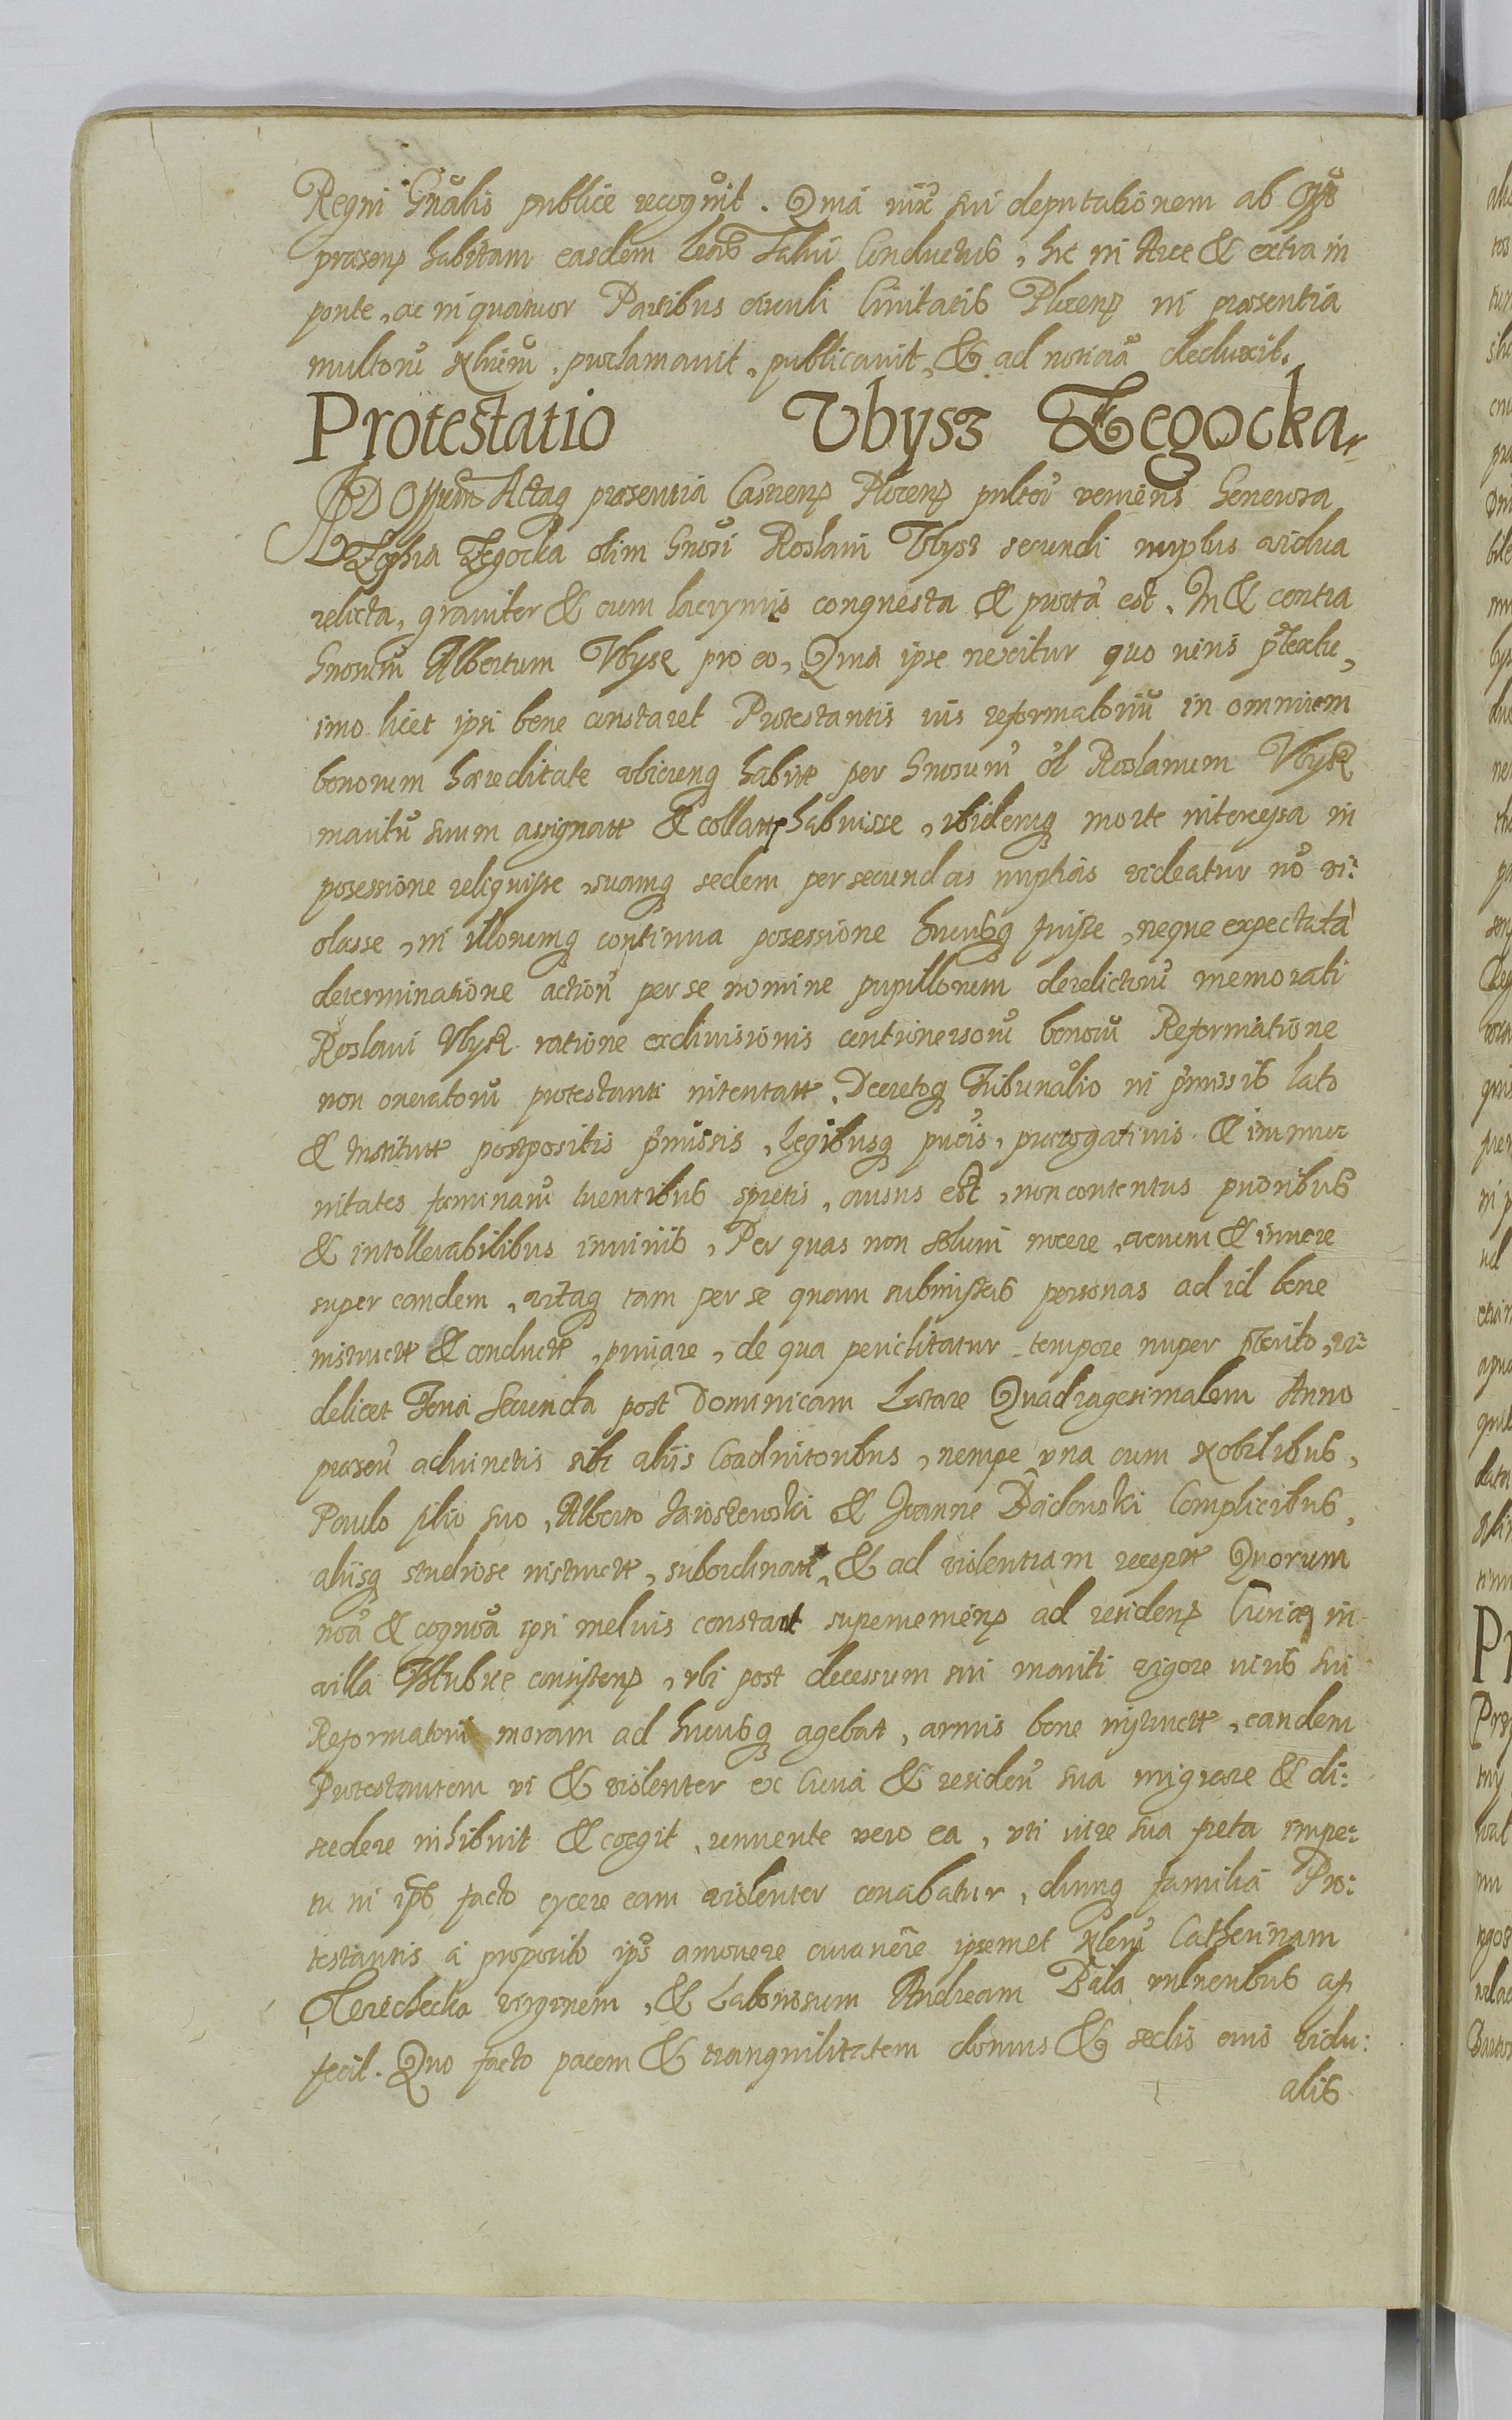 Regni Gnãlis publice recognit. Quia iux sui deputationem ab Offo
præsenp habitam easdem Lras Salui Conductus, hic in Arce & extra in
ponte, ac in quatuor Partibus circuli Ciuitatis Plocenp in præsentia
multorũ Nliũm, proclamauit, publicauit, & ad noticiã deduxit.
Protestatio Vbysz Zegocka.
AD Offum Actaq præsentia Castrenp Plocenp veniens Generosa
Zophia Zegocka olim Gnosi Roslani Vbysz secundi nuptus vidua
relicta, grauiter & cum lacrymis conquesta & est. In & contra
Gnosum Albertum Vbysz pro eo, Quia ipse nescitur quo iuris ptextu,
imo licet ipsi bene constaret Protestantis ius reformatoriũ in omniem
bonorum hæreditate vbicunq habit per Gnosum ol Roslanum Vbysz
maritũ suum assignatt & collatt habuisse, ibidemq morte intercessa in
posessione reliquisse, suamq sedem per secundas nuptias videatur nõ vi:
olasse, in illorumq continua posessione hucusq fuisse, neque expectata
determinatione actionũ per se nomine pupillorum derelictorũ memorati
Roslani Vbysz ratione exdiuisionis controuersorũ bonorũ Reformatione
non oneratorũ protestanti intentatt, Decretoq Tribunalio in pmissis lato
& Institutt postpositis pmissis, Legibusq pubcis, prerogatiuis & immu:
nitates fæminarũ tuentibus spretis, ausus est, non contentus prioribus
& intollerabilibus iniuriis, Per quas non solum nocere, verum & iniuere
super eandem, vitaq tam per se quam submissas personas ad id bene
instructt & conductt, priuare, de qua periclitatur tempore nuper pterito, vi:
delicet Feria Secunda post Dominicam Lætare Quadragesimalem Anno
præsenti adiunctis sibi aliis Coadiutoribus, nempe vna cum Nobilibus,
Paulo filio suo, Alberto Jaroszewski & Joanne Complicibus,
aliisq studiose instructt, subordinatt, & ad violentiam receptt Quorum
noã & cognoã ipsi melius constant superueniens ad residenp Curiæ in
villa consistenp, vbi post decessum sui mariti vigore iuris sui
Reformatorii moram ad hucusq agebat, armis bene instructt, eandem
Protestantem vi & violenter ex Curia & residen sua migrare & di:
scedere inhibuit & coegit, renuente vero ea, vti iure sua freta impe:
tu in ipso facto eycere eam violenter conabatur, dumq familia Pro:
testantis a proposito ipso amouere ipsemet Nlem Catherinam
virginem, & Laboriosum Andream Bala vulneribus af
fecit. Quo facto pacem & tranquilitatem domus & sedis eius vidu:
alis